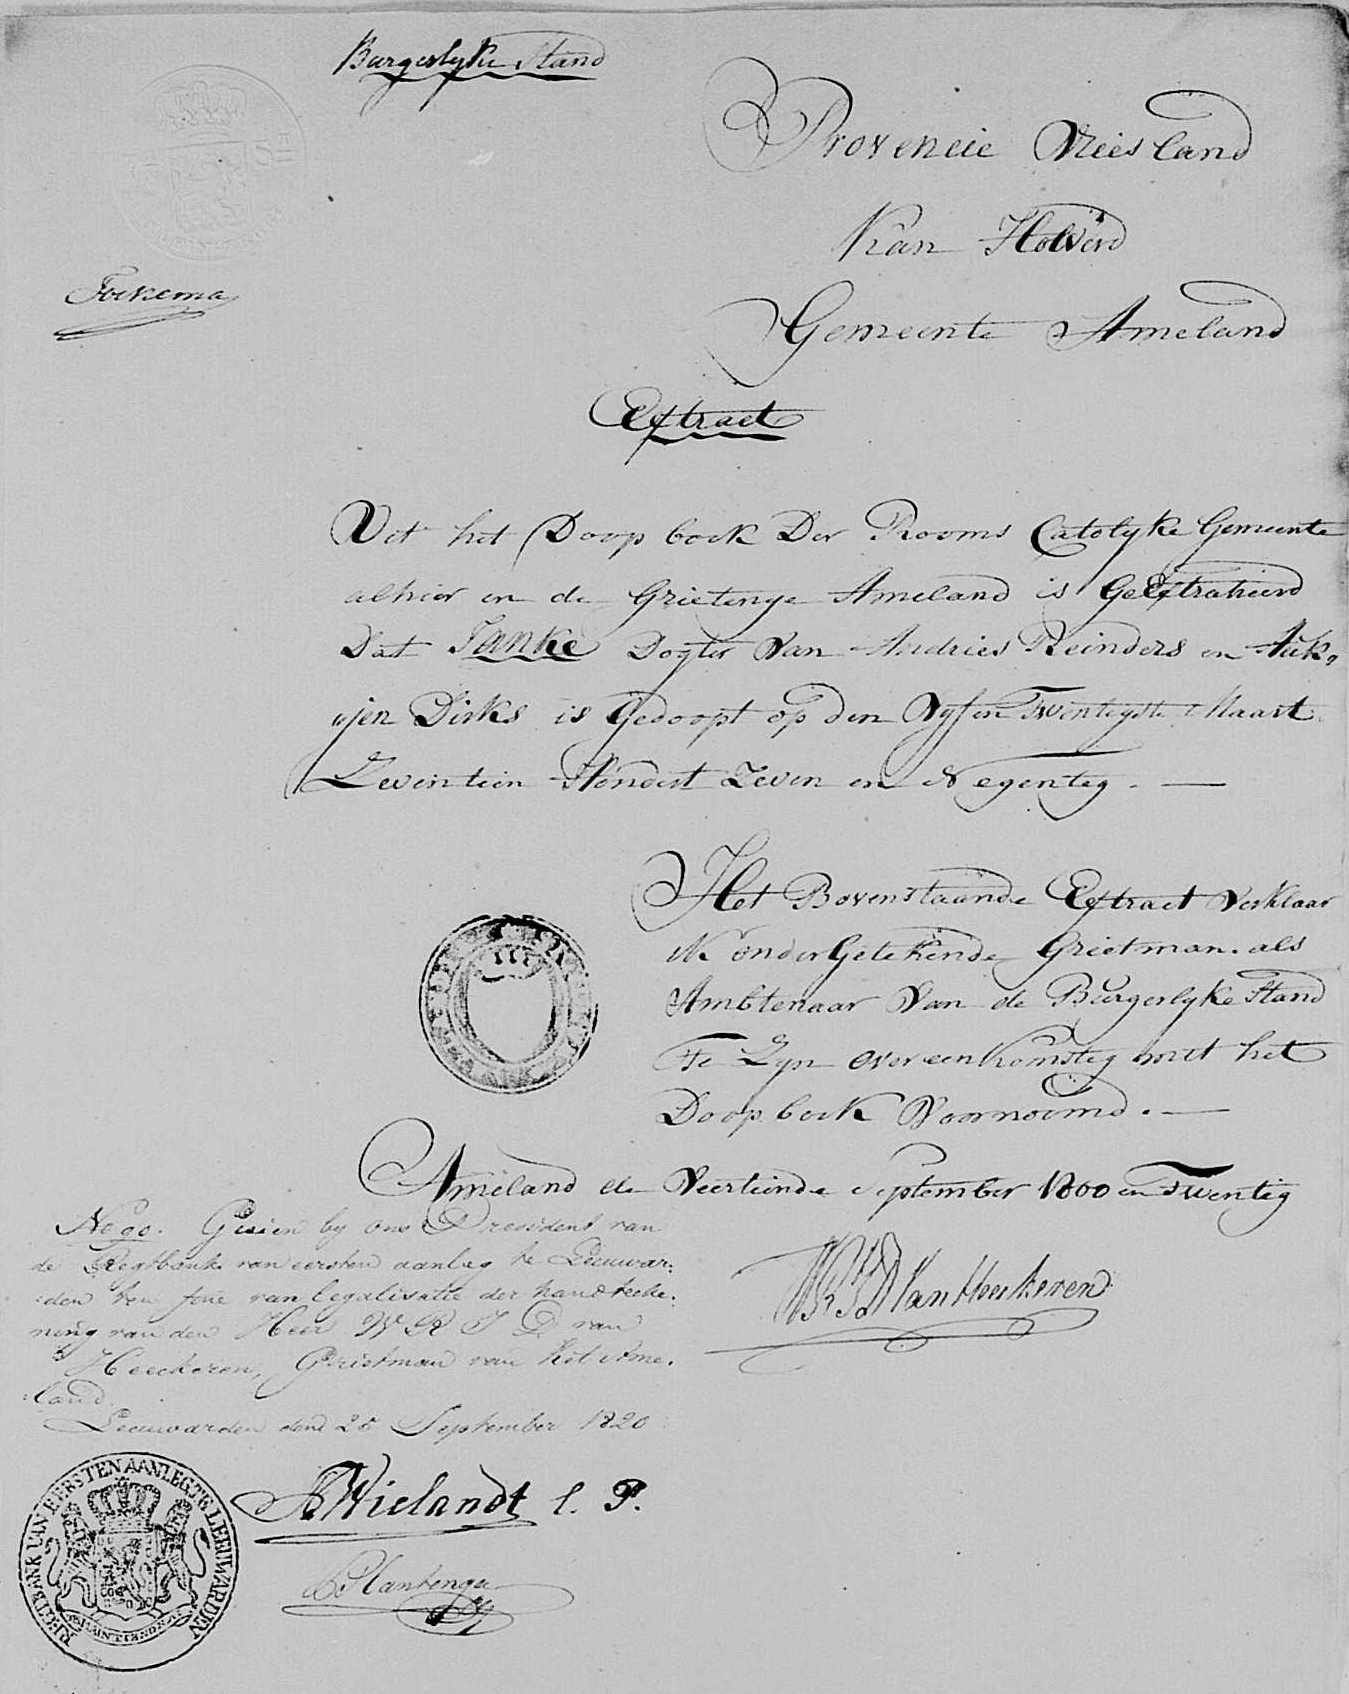 Burgerlyke Stand
Provencie Vriesland
Kan Holverd
Fockema
Gemeente Ameland
Extract
Uit het Doop boek Der Rooms Catolyke Gemeente
alhier en de Grietenye Ameland is GeExtraheerd
Dat Janke Dogter Van Andries Reinders en Auk,
,jen Dirks is Gedoopt op den Vyf en Twentigste Maart
Zeventien Hondert Zeven en Negenteg. —
Het Bovenstaande Extract Verklaar
ik onderGetekende Grietman als
Ambtenaar Van de Burgerlyke Stand
Te Zyn over een komsteg met het
Doop boek Voornoemd. —
Ameland de Veertiende September 1800 en Twentig
No 90. Gezien by ons President van
de Regtbank van eersten aanleg te Leeuwar:
:den ten fine van legalisatie der handteeke:
ning van den Heer W R J D van
Heeckeren, Grietman van het Ame:
:land
Leeuwarden den 25 September 1820
WRJD Van Heeckeren
Wielandt l. P.
Plantenga
RECHTBANK VAN EERSTEN AANLEG TE LEEUWARDEN
JE MAINTIENDRAI